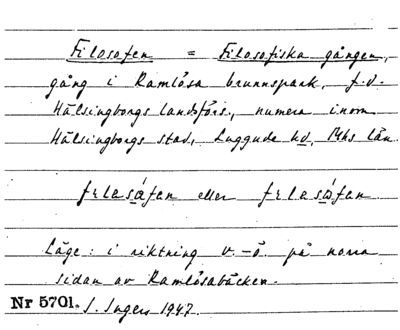 Filosofen = Filosofiska gången,
gång i Ramlösa brunnspark, f.d.
Hälsingborgs landsförs., numera inom
Hälsingborgs stad, Luggude hd, Mhs län.
felasáfan eller felasåfan
Läge: i riktning v.-ö. på norra
sidan av Ramlösabäcken.
Nr 5701. I. Ingers 1947.